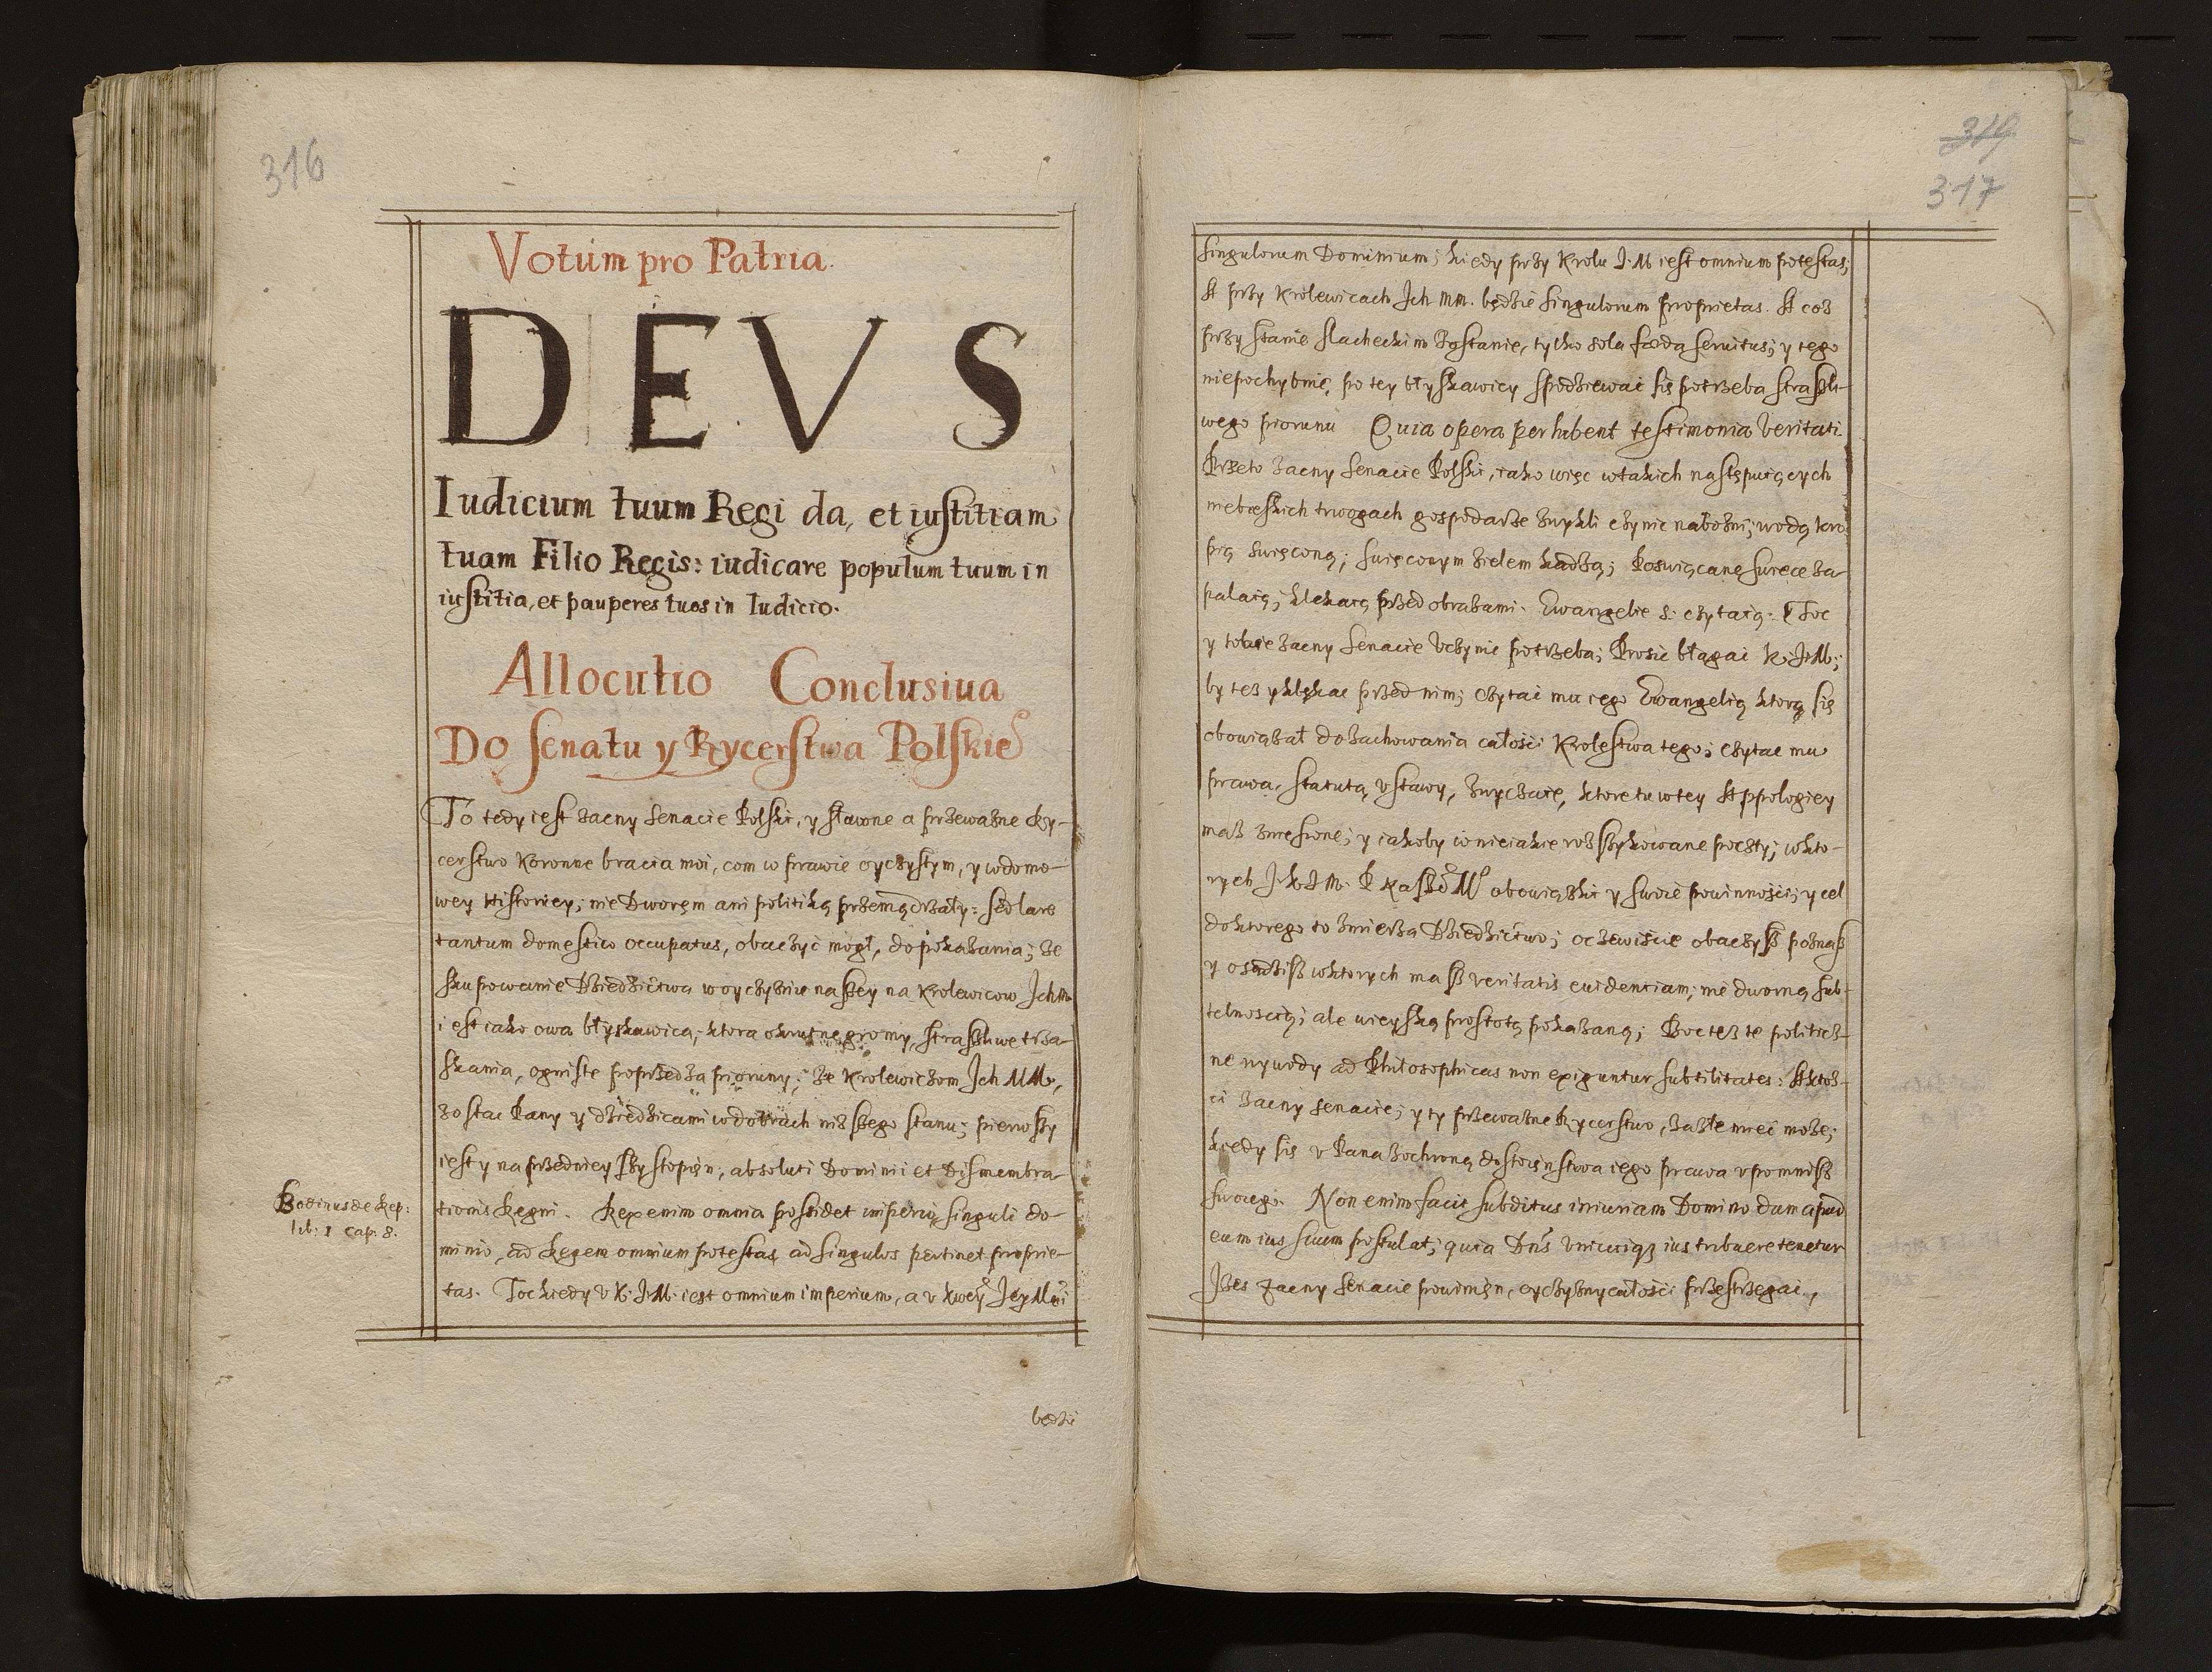 316
Votum pro Patria.
DEVS
Iudicium tuum Regi da, et iustitiam
tuam Filio Regis: iudicare populum tuum in
iustitia, et pauperes tuos in Iudicio.
Allocutio Conclusiua
Do Senatu y Rycerstwa Polskie⁰
To tedy iest zacny Senacie Polski, y sławne a przeważne Ry-
cerstwo Koronne bracia moi, com w prawie oyczystym, y w domo-
wey Historiey; nie Dworęm ani politiką przemądrzały: sed lare
tantum domestico occupatus, obaczyć mogł, do pokazania; że
skupowanie Dziedzictwa w oyczyznie naszey na Krolewicow Ich M
iest iako owa błyskawica, ktora okrutne gromy, straszliwe trza-
skania, ogniste poprzedza pioruny; że Krolewiczom Ich MM,
zostac Pany y dziedzicami w dobrach niższego stanu; pierwszy
iest y naprzednieyszy stopięn, absoluti Dominii et Dismembra-
tionis Regni. Rex enim omnia possidet imperio, singuli do-
minio, ad Regem omnium potestas, ad singulos pertinet proprie-
tas. Toc kiedy v K. J. M. iest omnium imperium, a v Kwey Jey Mci
Bodinus de Rep:
lib: 1 cap: 8.
będzie
319
317
singulorum Dominium; kiedy przy Krolu J. M iest omnium potestas;
A przy Krolewicach Ich MM. będzie singulorum proprietas. A coż
przy stanie slacheckim zostanie, tylko sola fœda seruitus; y tego
niepochybnię, po tey błyskawicy spodziewai się potrzeba straszli-
wego piorunu Quia opera perhibent testimonia veritati.
Przeto zacny Senacie Polski, iako więc w takich nastepuiących
niebeskich trwogach gospodarze zwykli czynic nabożni; wodą kro-
pią swięconą; swięconym zielem kadzą; Poswiącanę swiece za-
palaią; klekaią przed obrazami. Ewangelie S. czytaią. Toc
y tobie zacny Senacie vczynic potrzeba; Prosic błagai K. J. M;
by też y klękac przed nim; czytai mu iego Ewangelią ktorą się
obowiązał do zachowania całości Krolestwa tego; czytac mu
prawa, statuta, vstawy, zwyczaie, ktore tu w tey Appologiey
masz zniesione; y iakoby w nieiakie rozszykowane poczty; w kto-
rych J. K. J. M. P. Nasze⁰ M⁰ obowiązki y swoie powinności; y cel
do ktorego to zmierza Dziedzictwo; oczewiście obaczysz poznasz
y osądzisz w ktorych masz veritatis euidentiam; nie dworną sub-
telnoscią; ale wieyską prostotą pokazaną; Boc też te politicz-
ne wywody ad Philosophicas non exiguntur subtilitates: A ktoż
ci zacny senacie; y ty przeważne Rycerstwo, za złe miec może;
kiedy się v Pana z ochroną dostoięnstwa iego prawa vpomnisz
swoiego. Non enim facit subditus iniuriam Domino dum apud
eum ius suum postulat; quia Dn̄s vnicuiqʒ ius tribuere tenetur
Iżes zacny Senacie powinięn, oyczyzny całości przestrzegai,